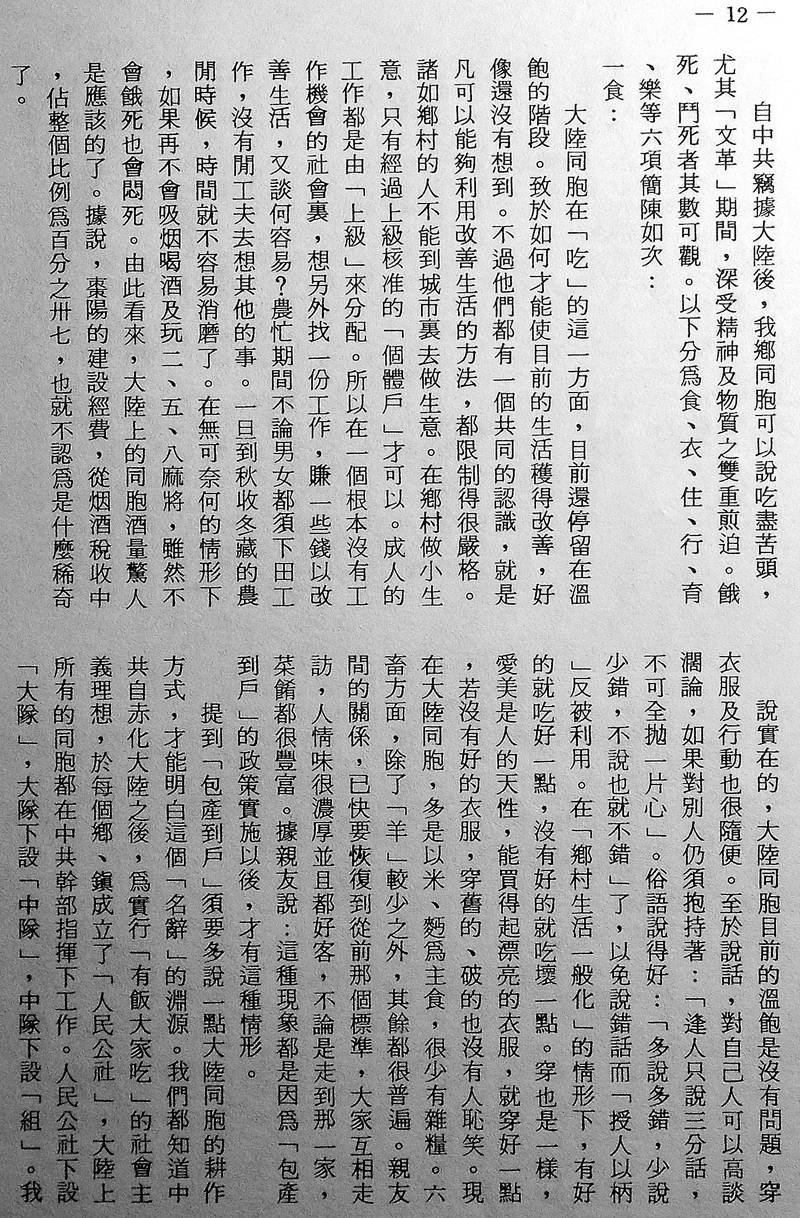 — 12 —
自中共竊據大陸後，我鄉同胞可以說吃盡苦頭，
尤其「文革」期間，深受精神及物質之雙重煎迫。餓
死、鬥死者其數可觀。以下分爲食、衣、住、行、育
、樂等六項簡陳如次：
一食：
大陸同胞在「吃」的這一方面，目前還停留在溫
飽的階段。致於如何才能使目前的生活穫得改善，好
像還沒有想到。不過他們都有一個共同的認識，就是
凡可以能夠利用改善生活的方法，都限制得很嚴格。
諸如鄉村的人不能到城市裏去做生意。在鄉村做小生
意，只有經過上級核准的「個體戶」才可以。成人的
工作都是由「上級」來分配。所以在一個根本沒有工
作機會的社會裏，想另外找一份工作，賺一些錢以改
善生活，又談何容易？農忙期間不論男女都須下田工
作，沒有閒工夫去想其他的事。一旦到秋收冬藏的農
閒時候，時間就不容易消磨了。在無可奈何的情形下
，如果再不會吸烟喝酒及玩二、五、八麻將，雖然不
會餓死也會悶死。由此看來，大陸上的同胞酒量驚人
是應該的了。據說，棗陽的建設經費，從烟酒稅收中
，佔整個比例爲百分之卅七，也就不認爲是什麼稀奇
了。
說實在的，大陸同胞目前的溫飽是沒有問題，穿
衣服及行動也很隨便。至於說話，對自己人可以高談
濶論，如果對別人仍須抱持著：「逢人只說三分話，
不可全拋一片心」。俗語說得好：「多說多錯，少說
少錯，不說也就不錯」了，以免說錯話而「授人以柄
」反被利用。在「鄉村生活一般化」的情形下，有好
的就吃好一點，沒有好的就吃壞一點。穿也是一樣，
愛美是人的天性，能買得起漂亮的衣服，就穿好一點
，若沒有好的衣服，穿舊的、破的也沒有人恥笑。現
在大陸同胞，多是以米、麪爲主食，很少有雜糧。六
畜方面，除了「羊」較少之外，其餘都很普遍。親友
間的關係，已快要恢復到從前那個標準，大家互相走
訪，人情味很濃厚並且都好客，不論是走到那一家，
菜餚都很豐富。據親友說：這種現象都是因爲「包產
到戶」的政策實施以後，才有這種情形。
提到「包產到戶」須要多說一點大陸同胞的耕作
方式，才能明白這個「名辭」的淵源。我們都知道中
共自赤化大陸之後，爲實行「有飯大家吃」的社會主
義理想，於每個鄉、鎭成立了「人民公社」，大陸上
所有的同胞都在中共幹部指揮下工作。人民公社下設
「大隊」，大隊下設「中隊」，中隊下設「組」。我